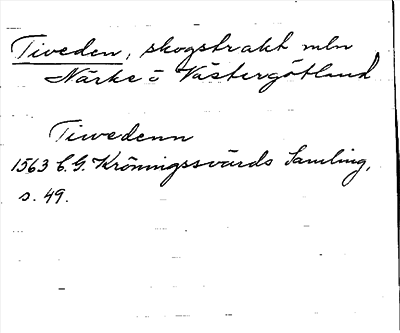 Tiveden, skogstrakt mln
Närke o Västergötland
Tiwedenn
1563 C. G. Krönningssvärds Samling,
s. 49.